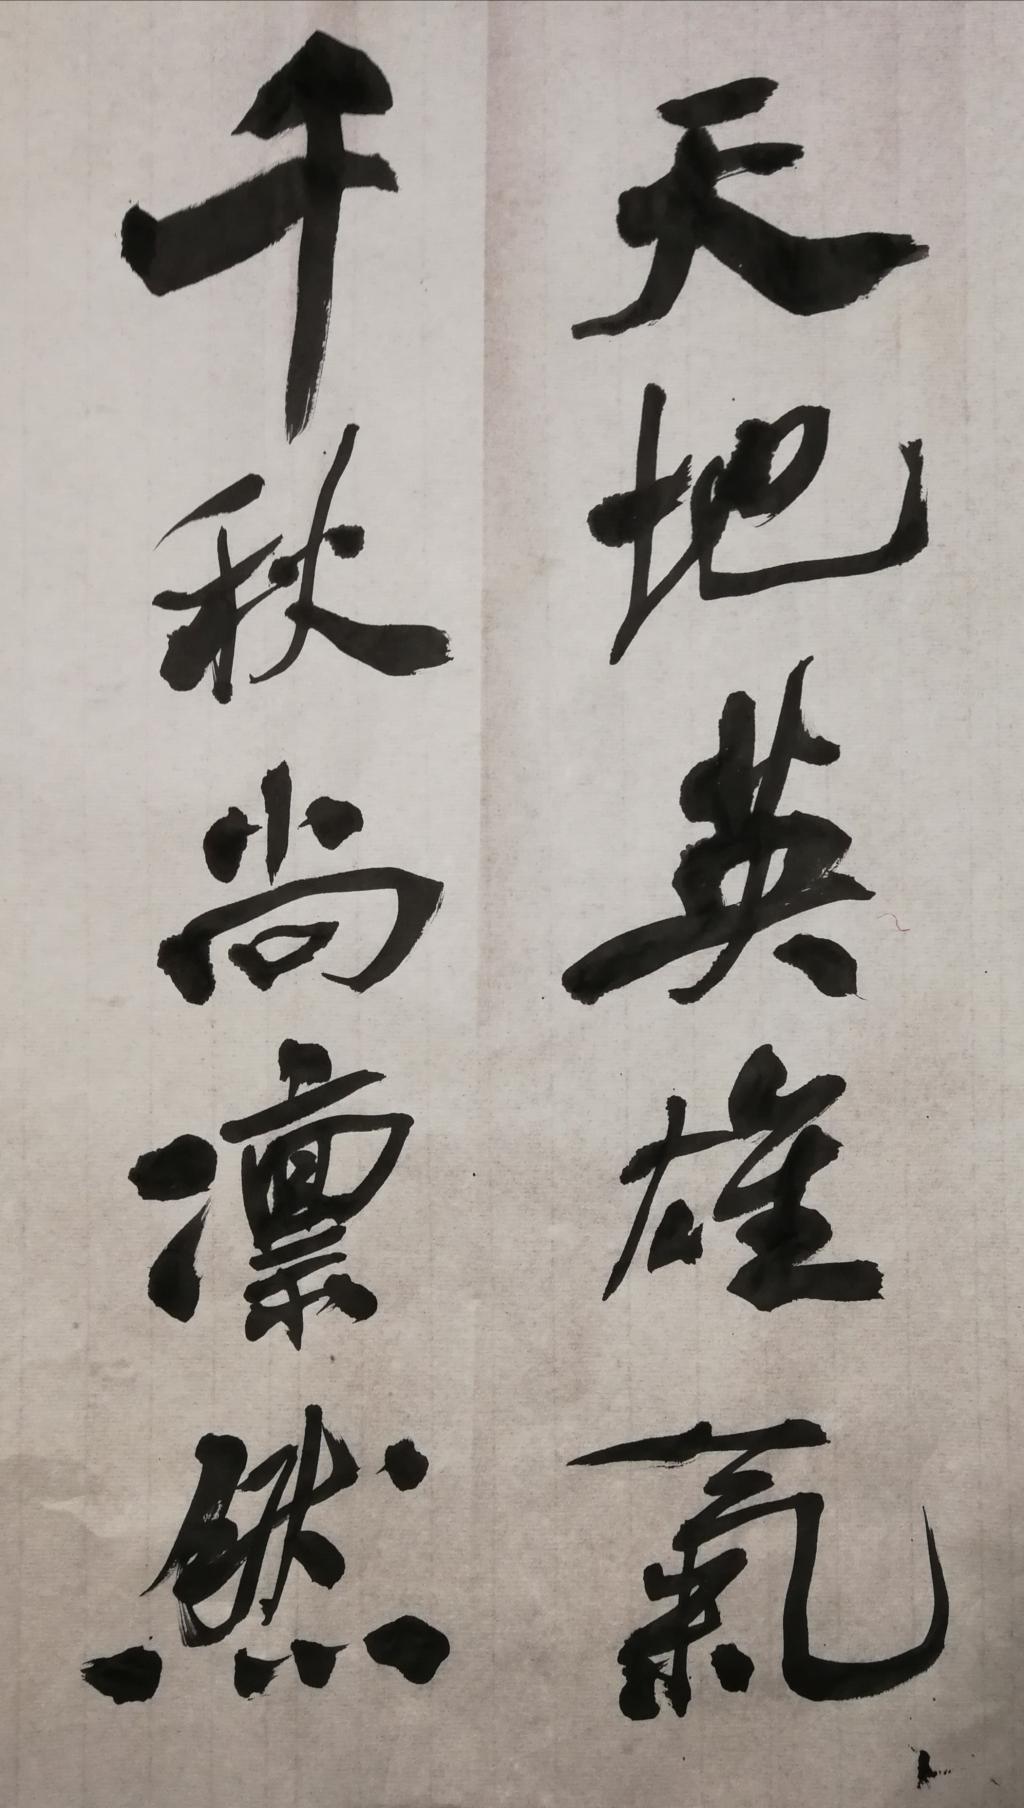 天地英雄氣
千秋尚凛然